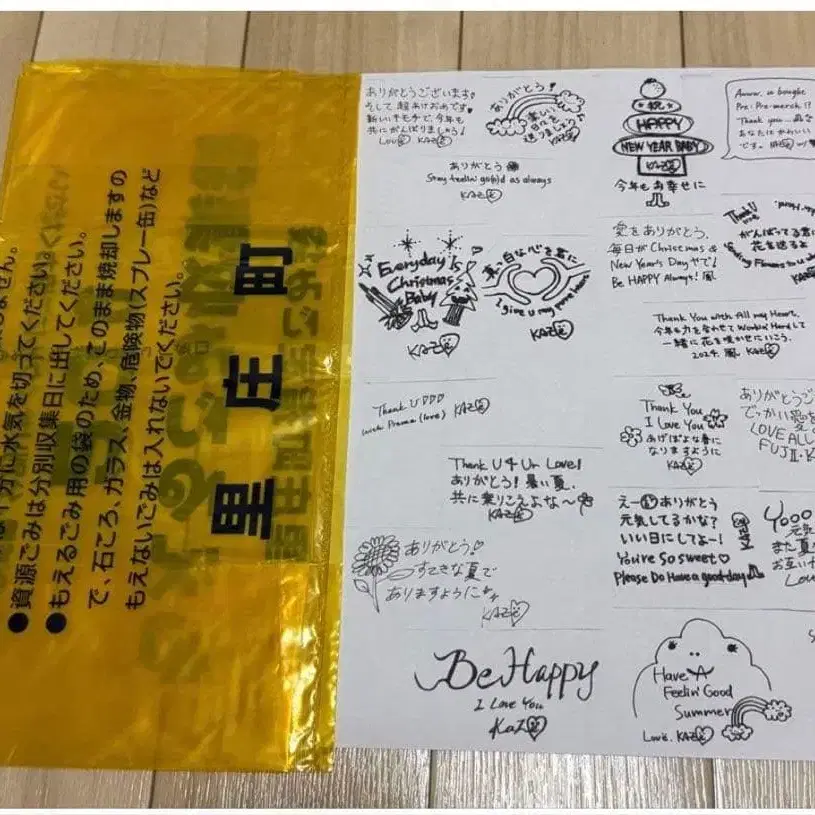 里庄町
●資源ごみは分別収集日に出してください。
●もえるごみ用の袋のため、このまま焼却しますの
で、石ころ、ガラス、金物、危険物(スプレー缶)など
もえないごみは入れないでください。
ありがとうございます
そして超あけおめです
新しいキモチで、今年も
共にがんばりましょう!
Love KAZE
ありがとう!
楽しい
日々を
送りましょう
KAZE
祝
HAPPY
NEW YEAR BABY
KAZE
今年もお幸せに
Pre-Pre-merch!?
Thank you
あなたはかわいい
です。KAZE
ありがとう
Stay feelin' go(o)d as always
KAZE
Thank U
がんばってる君に
花を送るよ
Sending Flowers to u
愛をありがとう。
毎日がChristmas &
New Year's Dayやで!
Be HAPPY Always! 風
Everyday Is
Christmas
Baby
KAZE
真っ白な心を君に
I give u my pure heart
KAZE
Thank You with All my Heart.
今年も力を合わせてWorkin' Hardして
一緒に花を咲かせにいこう。
2024. 風. KAZE
Thank U
with Prema (love) KAZE
Thank You
I Love You
あげぽよな春に
なりますように
KAZE
ありがとうご
でっかい愛を
LOVE ALL
FUJII・K
Thank U 4 Ur Love!
ありがとう!暑い夏、
共に乗りこえよな〜
KAZE
えーありがとう
元気してるかな?
いい日にしてよー!
You're So Sweet♡
Please Do Have a good day
KAZE
Yooo
元気
また夏
お互い
Love
ありがとう!
すてきな夏で
ありますように
KAZE
Be Happy
I Love You
KAZE
Have A
Feelin' Good
Summer
Love. KAZE